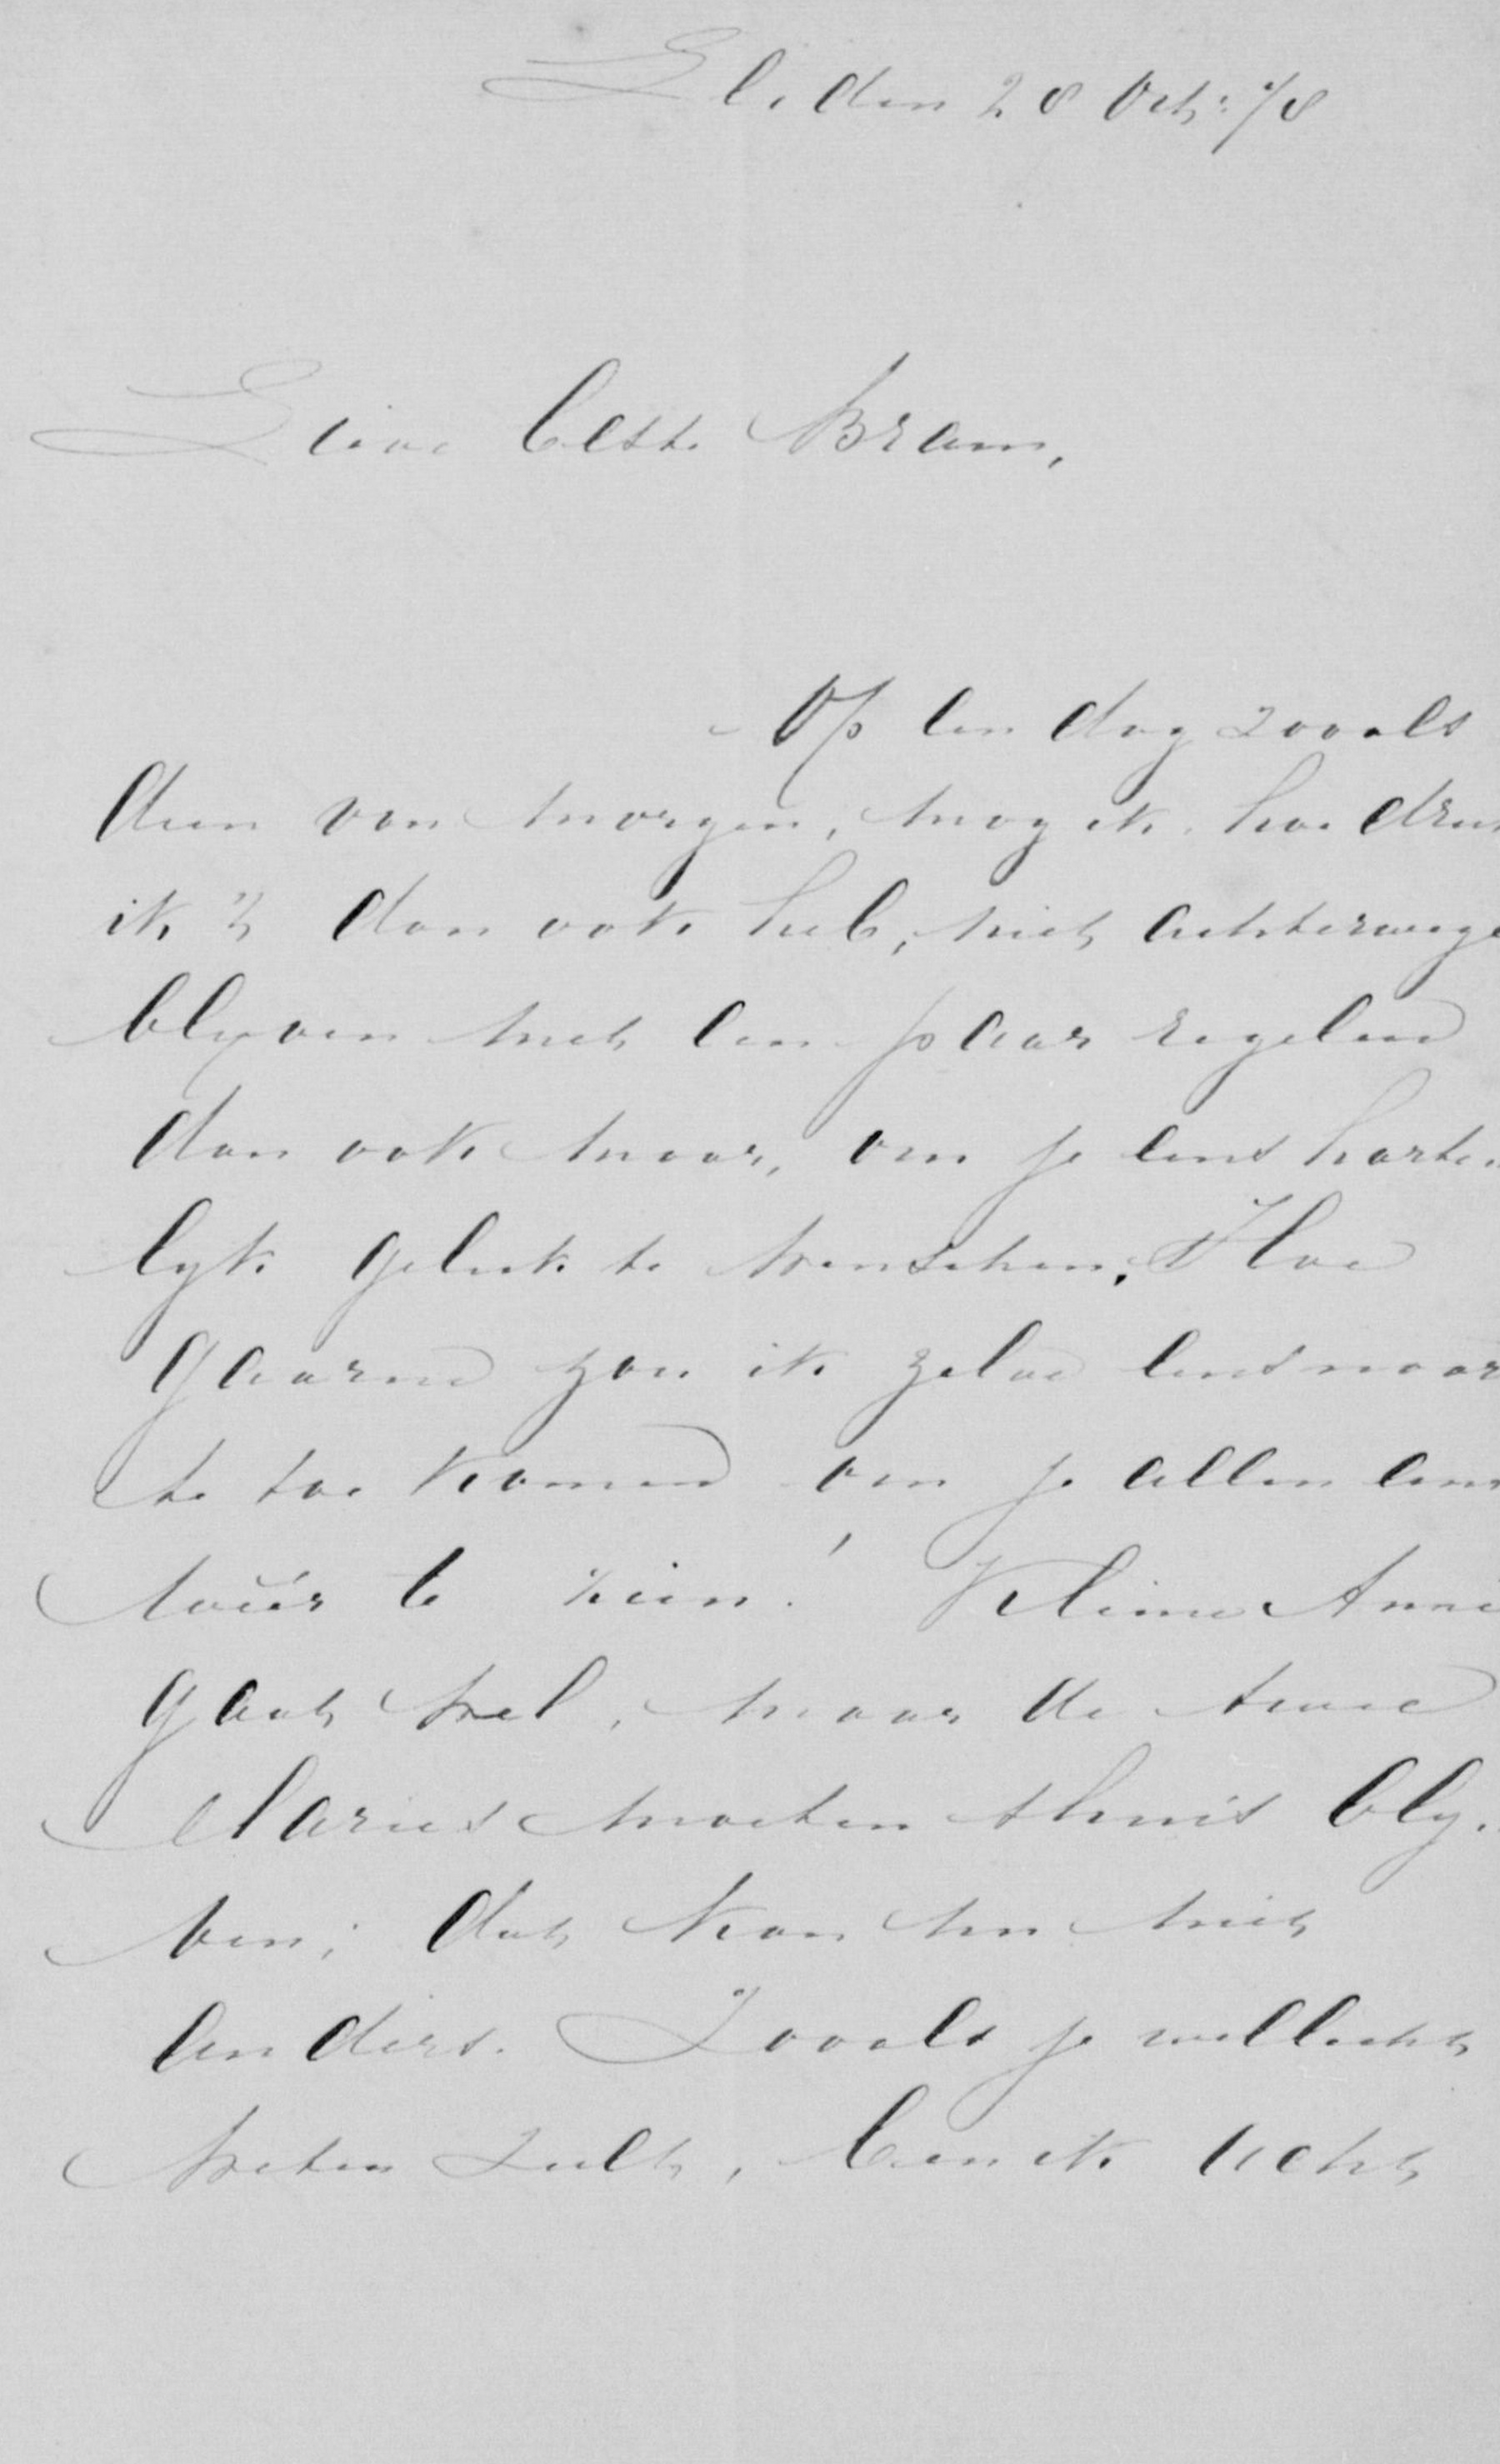 Leiden 28 Oct: 78
Lieve beste Bram,
Op een dag zooals
dien van morgen, mag ik, hoe druk
ik 't dan ook heb, niet achterwege
blyven met een paar regelen
dan ook maar, om je eens harte
lyk geluk te wenschen. Hoe
gaarne zou ik zelve eens naar
te toe komen om je allen eens
weêr te zien! Kleine Anna
gaat wel, maar de twee
Maries moeten thuis bly.
ven; dat kan nu niet
anders. Zooals je wellicht
weten zult, ben ik acht